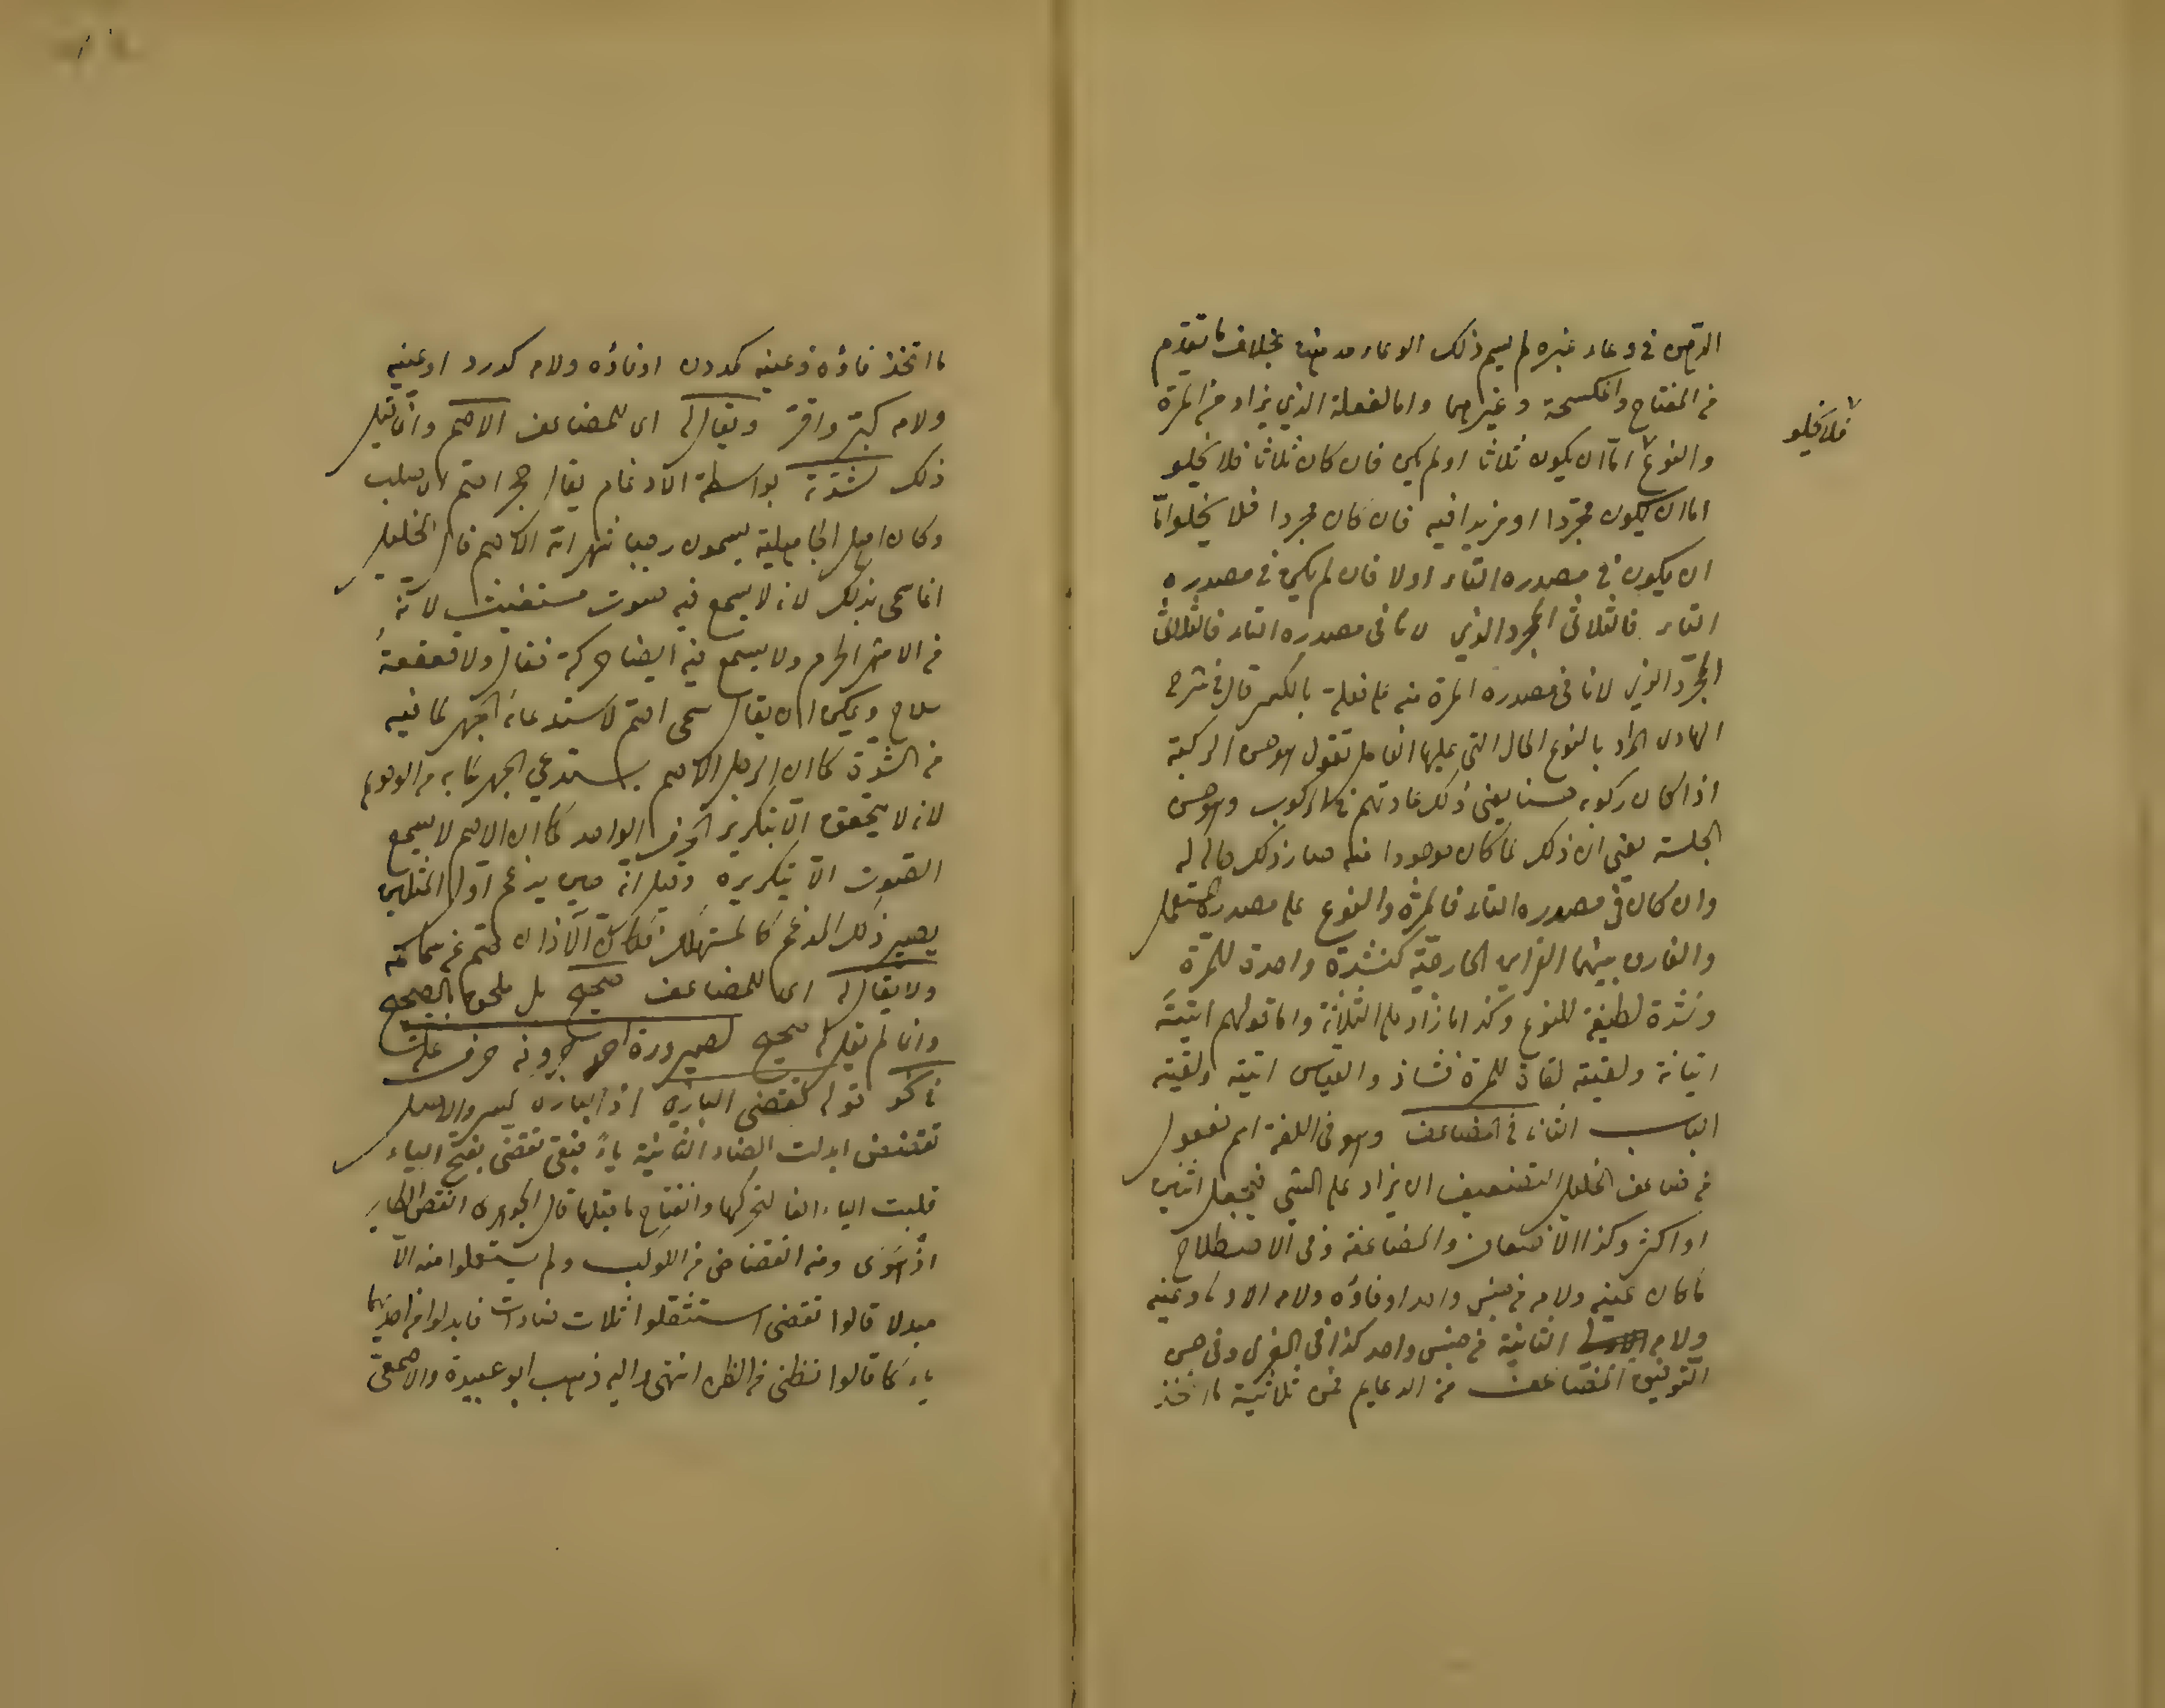 الدهن في وعاء غيره لم يسم ذلك الوعاء مدهنا بخلاف ما تقدم
من المفتاح والمكسحة وغيرهما واما الفعلة الذي يراد من المرة
والنوع اما ان يكون ثلاثيا او لم يكن فان كان ثلاثيا فلا يخلو
فلا يخلو
اما ان يكون مجردا او مزيدا فيه فان كان مجردا فلا يخلو اما
ان يكون في مصدره التاء اولا فان لم يكن في مصدره
التاء فالثلاثي المجرد الذي لا تا في مصدره التاء فالثلاثي
المجرد الذي لا تا في مصدره المرة منه على فعلة بالكسر قال في شرح
الهادي المراد بالنوع الحال التي عليها الفاعل تقول هو حسن الركبة
اذا كان ركوبه حسنا يعني ذلك عادتهم في الركوب وهو حسن
الجلسة يعني ان ذلك لما كان موجودا منه صار ذلك حالة له
وان كان في مصدره التاء فالمرة والنوع على مصدره المستعمل
والفارق بينهما القراين الخارجية كنشدة واحدة للمرة
ونشدة لطيفة للنوع وكذا ما زاد على الثلاثة واما قولهم اتيته
اتيانة ولقيته لقاءة للمرة فشاذ والقياس اتية ولقية
الباب الثاني في المضاعف وهو في اللغة اسم مفعول
من ضاعف الخليل التضعيف ان يزاد على الشي فيجعل اثنين
او اكثر وكذا الاضعاف والمضاعفة وفي الاصطلاح
ما كان عينه ولامه من جنس واحد او فاؤه ولامه الاولى وعينه
ولامه الثانية من جنس واحد كذا في المغرى وفي حسن
التوفيق المضاعف من الدعايم فمن ثلاثية ما اتخذ
ما اتخذ فاؤه وعينه كددن او فاؤه ولامه كدرد او عينه
ولامه كبتر واقر ويقال له اي للمضاعف الاصم وان قيل
ذلك لشدته بواسطة الادغام يقال حجر اصم اي صلب
وكان اهل الجاهلية يسمون رجبا شهر الله الاصم قال الخليل
انما سمى بذلك لانه لا يسمع فيه صوت مستغيث لانه
من الاشهر الحرم ولا يسمع فيه ايضا حركة قتال ولا قعقعة
سلاح ويمكن ان يقال سمى اصم لاستدعائه الجهر لما فيه
من الشدة كما ان الرجل الاصم يستدعي الجهر لما به من الوقر
لانه لا يتحقق الا بتكرير الحرف الواحد كما ان الاصم لا يسمع
الصوت الا بتكريره وقيل انه حين يدغم اول المثلين
يصير ذلك المدغم كالمستهلك فكان الاذان تصم عن سماعه
ولا يقال له اي للمضاعف صحيح بل ملحق بالصحيح
وان لم يقل له صحيح لصيرورة احد حروفه حرف علة
في نحو قوله تقضي البازي اذا البازي كسر والاصل
تقضض ابدلت الضاد الثانية ياء فبقى تقضي بفتح الياء
قلبت الياء الفا لتحركها وانفتاح ما قبلها قال الجوهري انقض الطاير
اذا هوى ومنه انقضاض الكوكب ولم يستعملوا منه الا
مبدلا قالوا تقضى استثقلوا ثلاث ضادات فابدلوا من احديهما
ياء كما قالوا تظنى من الظن انتهى واليه ذهب ابو عبيدة والاصمعي